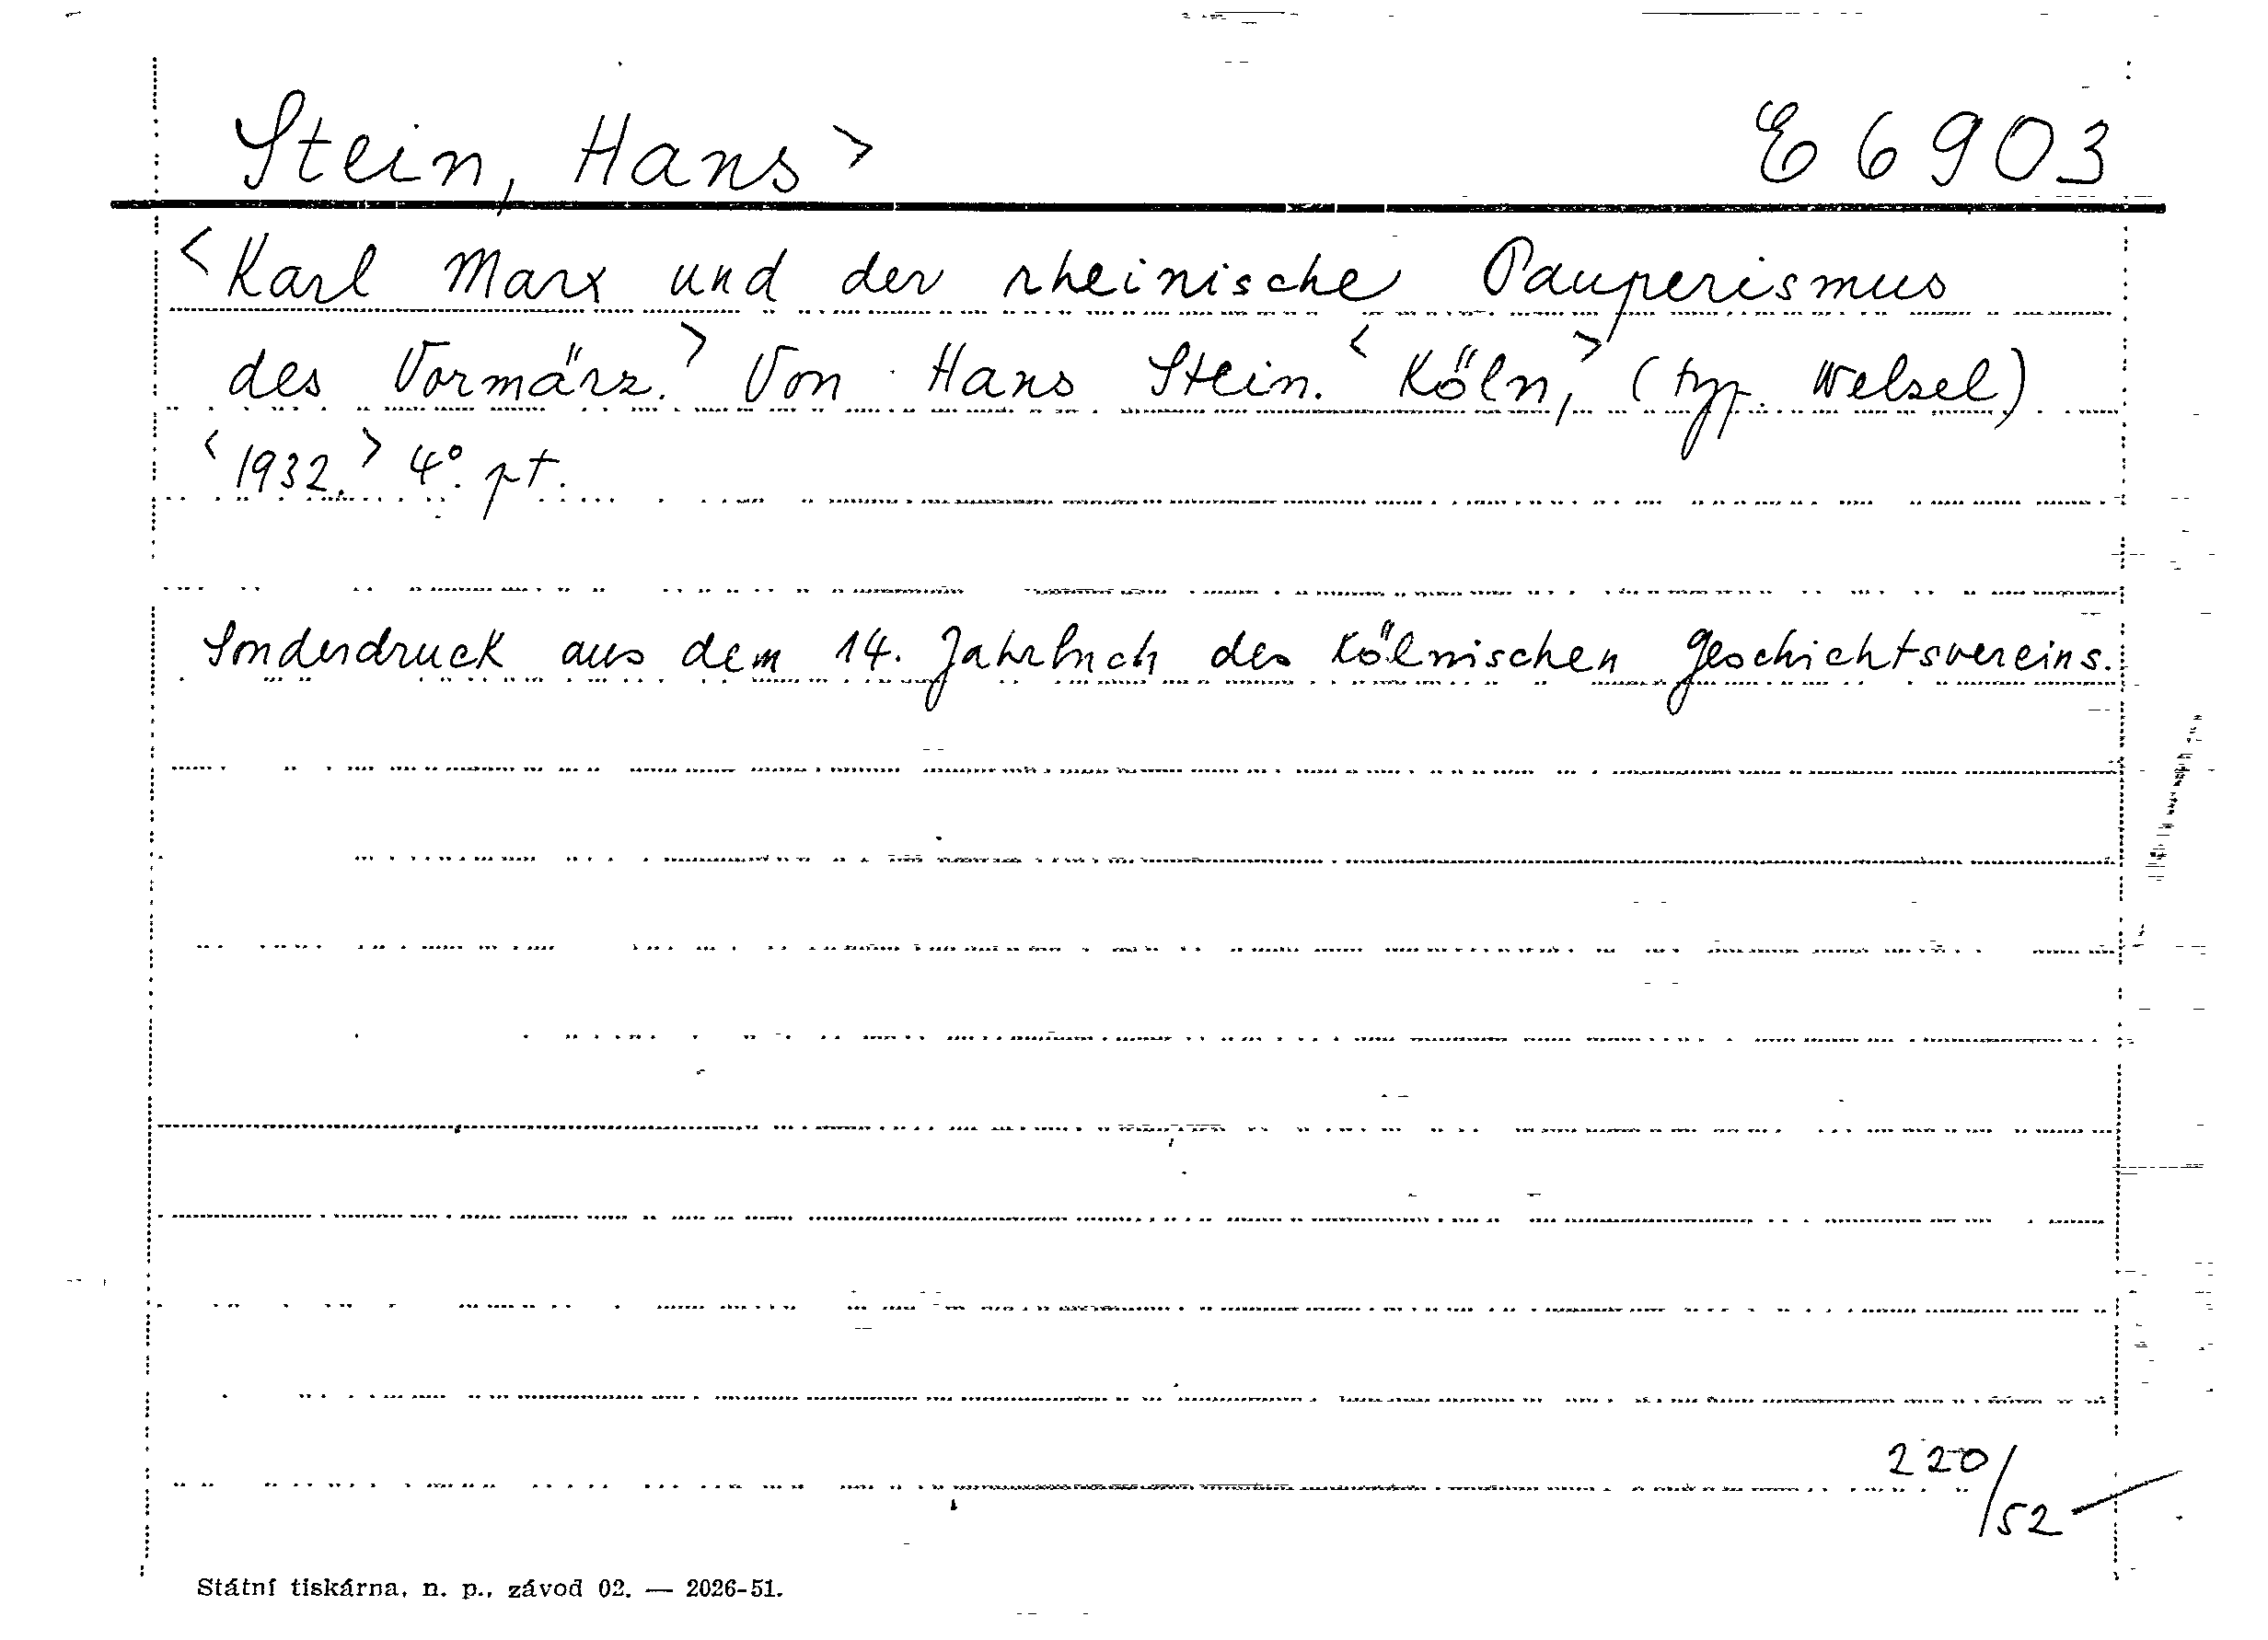 Stein, Hans> E 6903
<Karl Marx und der rheinische Pauperismus
des Vormärz.> Von Hans Stein. <Köln,> (typ. Welzel)
<1932.> 4°. pt.
Sonderdruck aus dem 14. Jahrbuch des Kölnischen Geschichtsvereins.
220/52
Státní tiskárna, n. p., závod 02. — 2026-51.